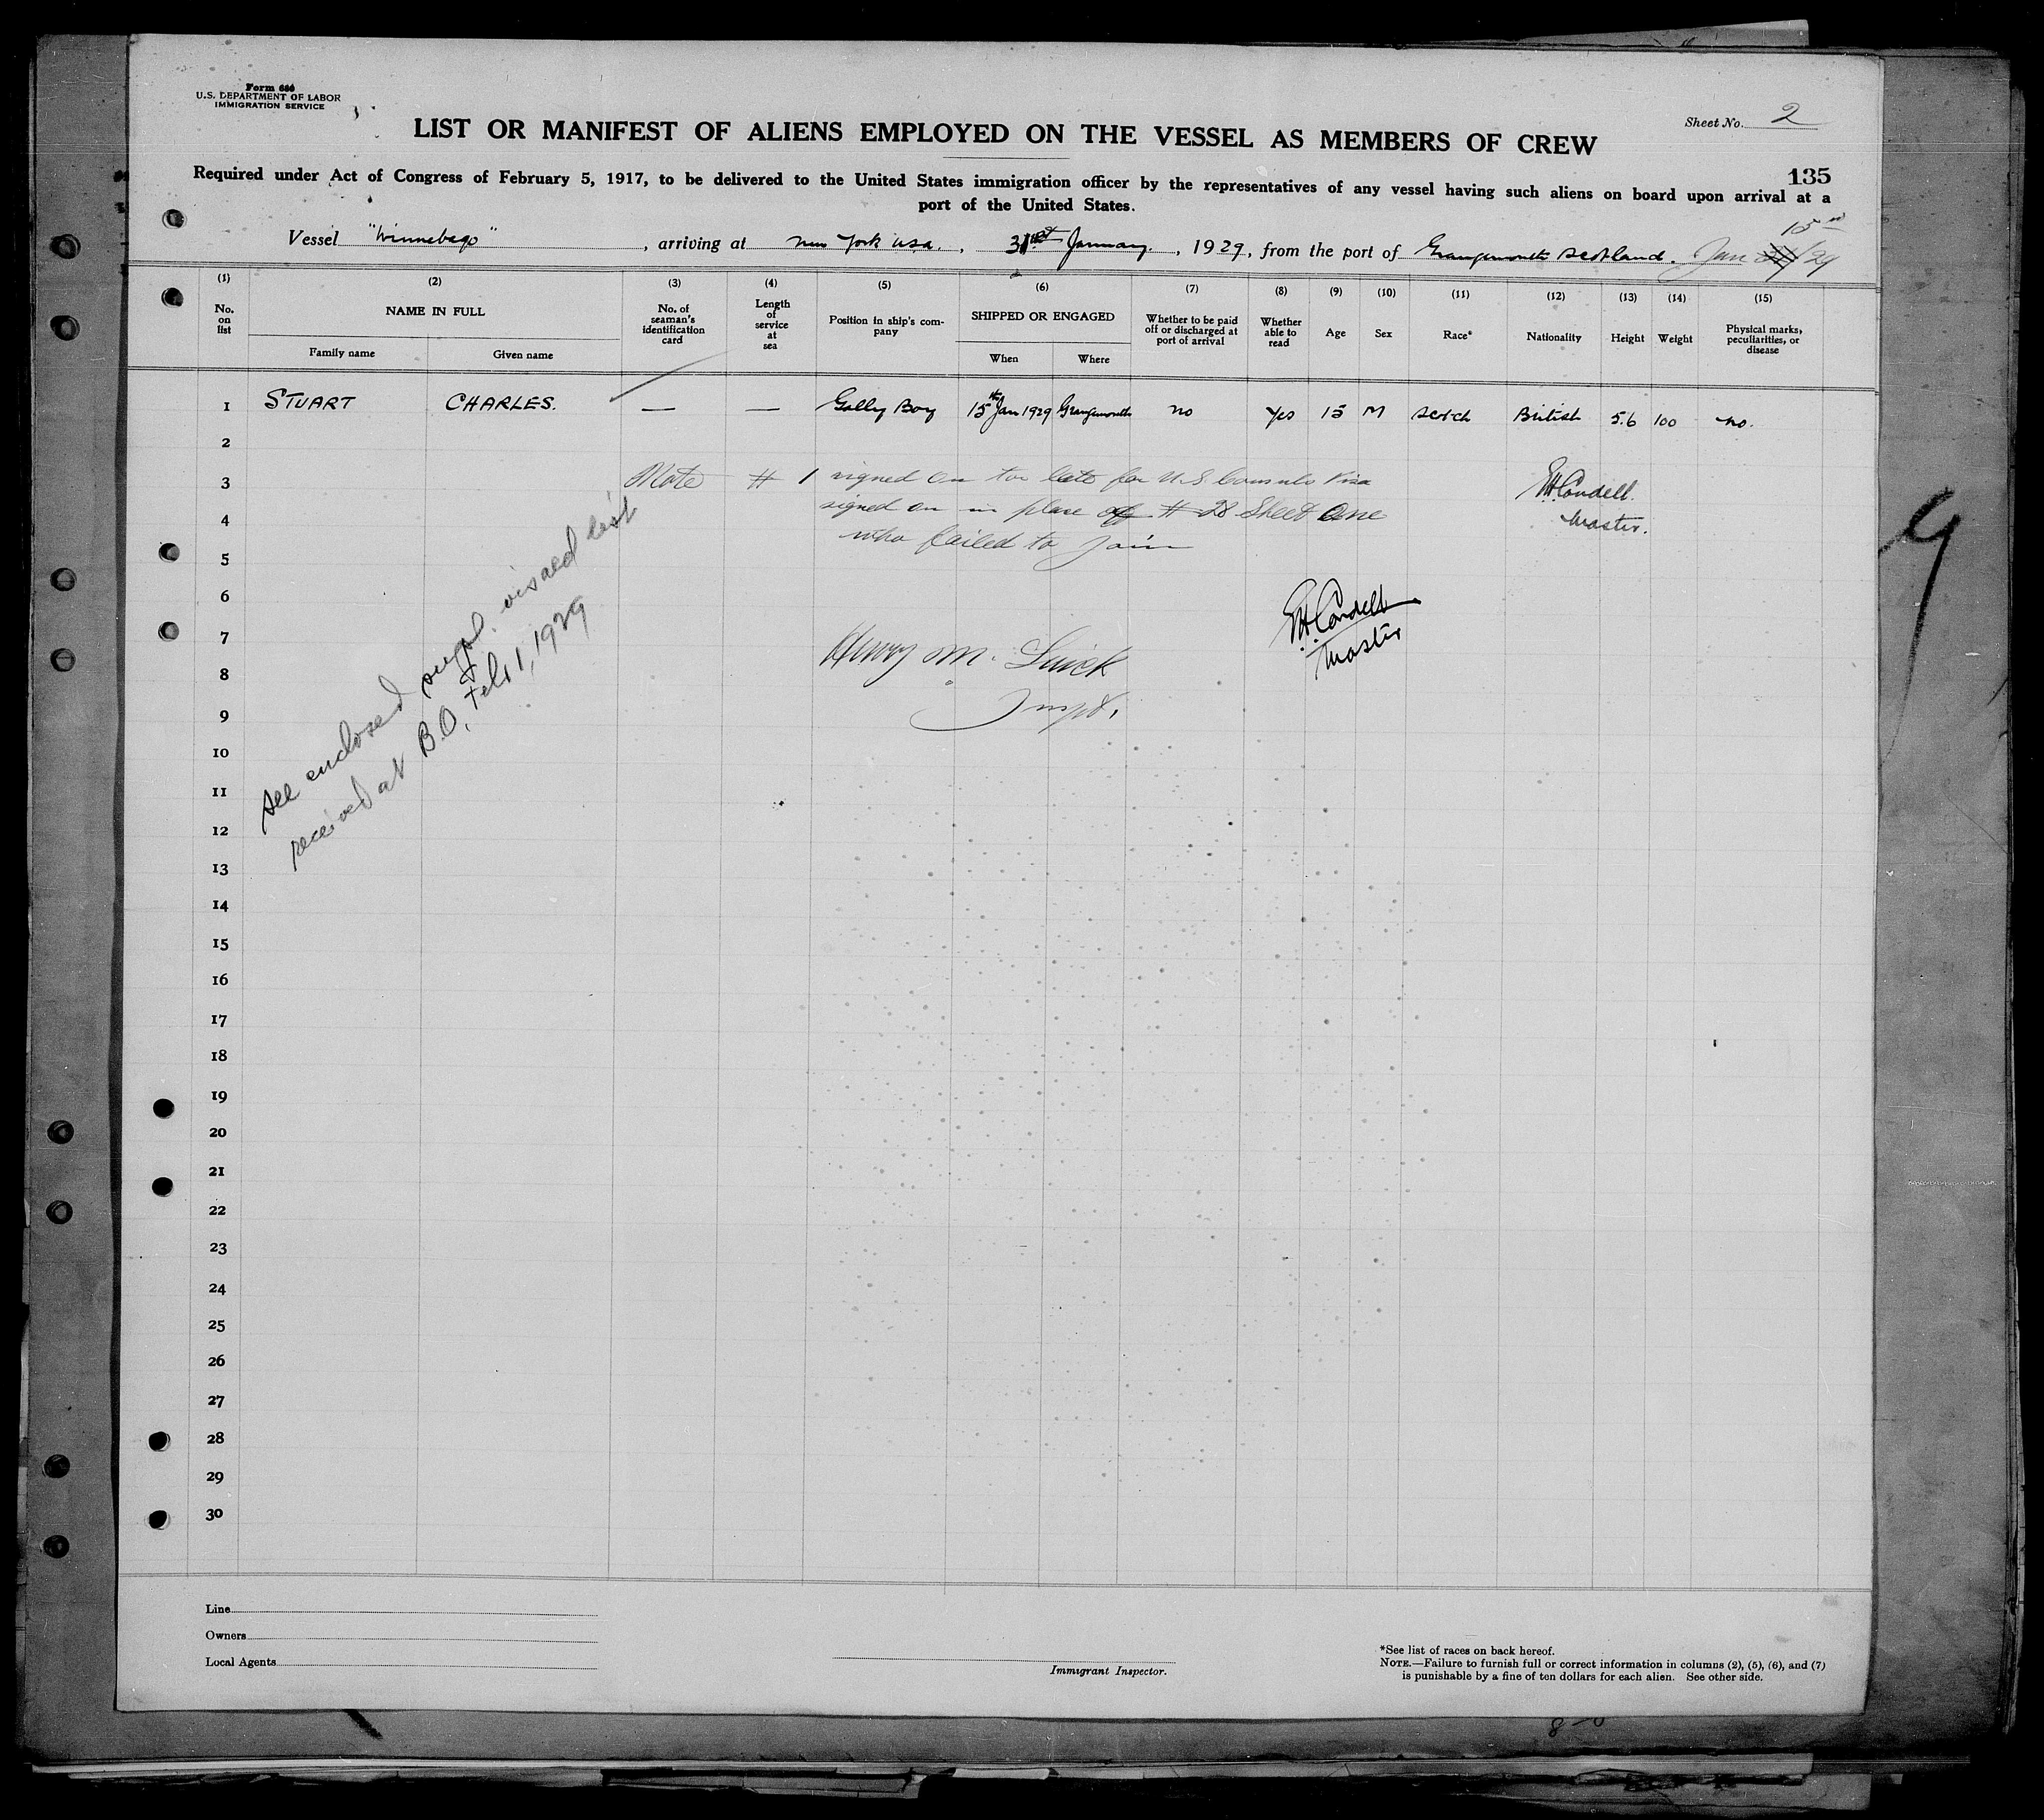 Form 680
U.S. DEPARTMENT OF LABOR
IMMIGRATION SERVICE
Sheet No. 2
LIST OR MANIFEST OF ALIENS EMPLOYED ON THE VESSEL AS MEMBERS OF CREW
135
Required under Act of Congress of February 5, 1917, to be delivered to the United States immigration officer by the representatives of any vessel having such aliens on board upon arrival at a
port of the United States.
15
Vessel "Winnebago", arriving at New York USA, 31st January, 1929, from the port of Grangemouth Scotland. Jan /29
(1) (2) (3) (4) (5) (6) (7) (8) (9) (10) (11) (12) (13) (14) (15)
No. on list
NAME IN FULL
Family name Given name
No. of seaman's identification card
Length of service at sea
Position in ship's company
SHIPPED OR ENGAGED
When Where
Whether to be paid off or discharged at port of arrival
Whether able to read
Age
Sex
Race*
Nationality
Height
Weight
Physical marks, peculiarities, or disease
1 STUART CHARLES. — — Gally Boy 15th Jan 1929 Grangemouth no yes 15 M Scotch British 5.6 100 no.
2
3 Note # 1 signed on too late for U.S. Consuls Visa EH Condell.
4 signed on in place of # 28 Sheet One Master.
5 who failed to join
6 EH Condell
7 Henry M. Master
8
9 Inspt.
10
11
12
13
14
15
16
17
18
19
20
21
22
23
24
25
26
27
28
29
30
see enclosed suppl. visaed list
received at B.O. Feb 1, 1929
9
Line
Owners
Local Agents
Immigrant Inspector.
*See list of races on back hereof.
NOTE.—Failure to furnish full or correct information in columns (2), (5), (6), and (7)
is punishable by a fine of ten dollars for each alien. See other side.